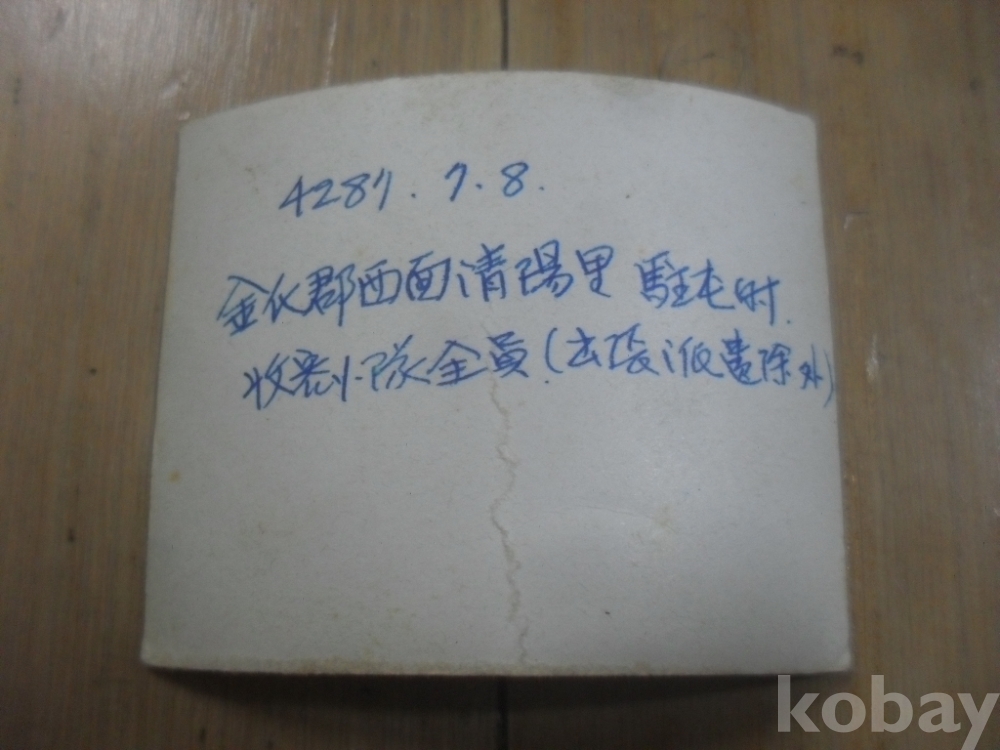 4287. 7. 8.
金化郡西面淸陽里 駐屯时.
小隊全員(出張派遣除外)
kobay